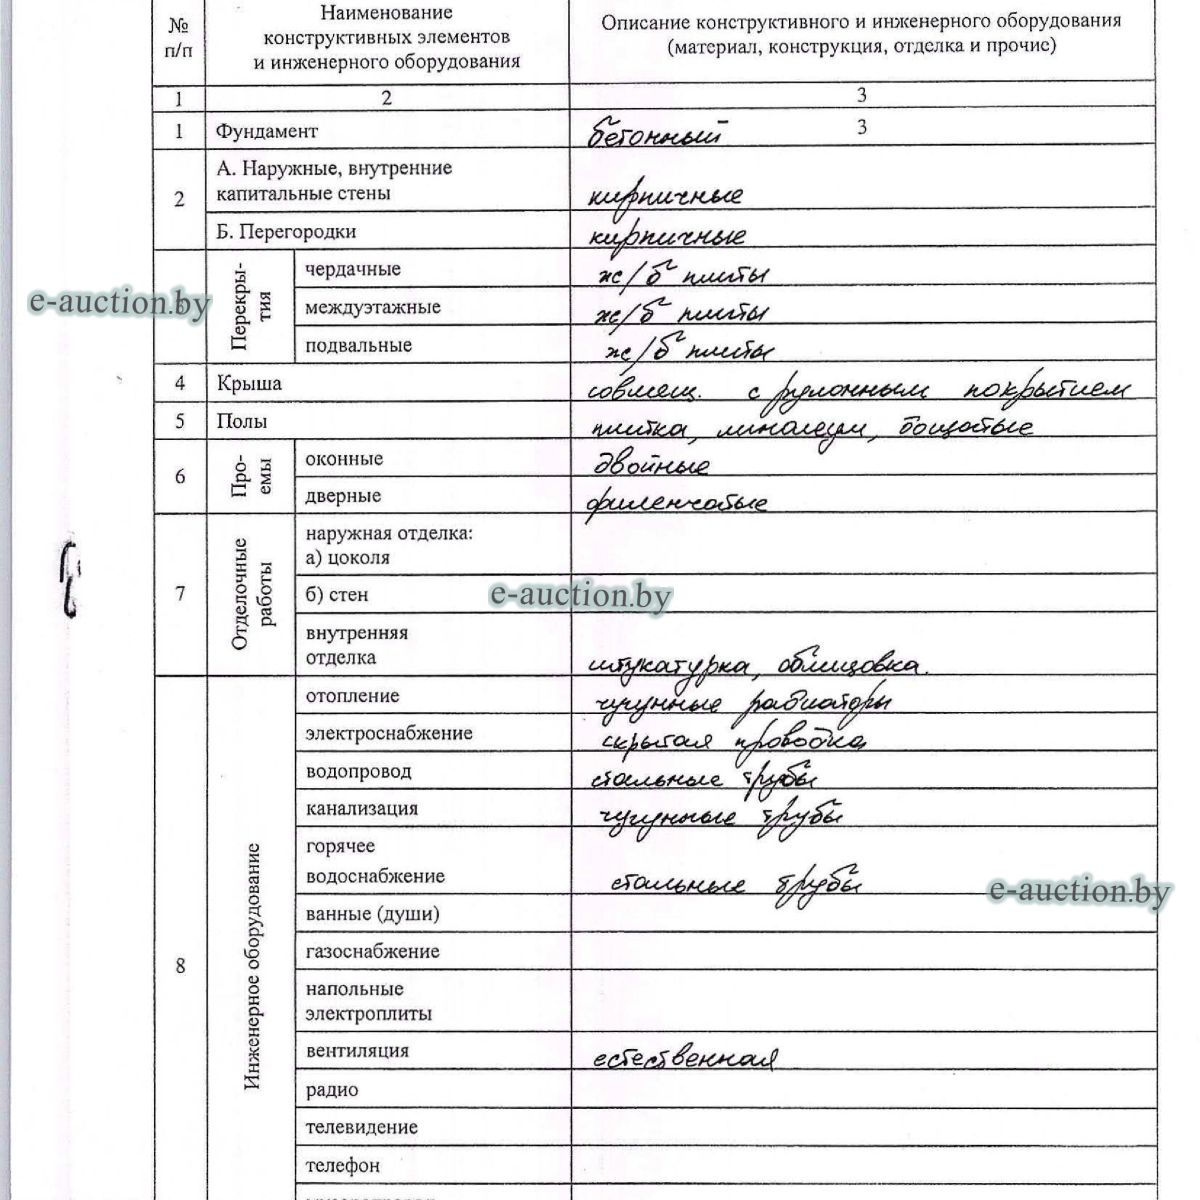 № п/п
Наименование
конструктивных элементов
и инженерного оборудования
Описание конструктивного и инженерного оборудования
(материал, конструкция, отделка и прочие)
1 2 3
1 Фундамент бетонный 3
2 А. Наружные, внутренние
капитальные стены кирпичные
Б. Перегородки кирпичные
Перекры-
тия
чердачные ж/б плиты
e-auction.by
междуэтажные ж/б плиты
подвальные ж/б плиты
4 Крыша совмещ. с рулонным покрытием
5 Полы плитка, линолеум, дощатые
6 Про-
емы
оконные двойные
дверные филенчатые
7 Отделочные
работы
наружная отделка:
а) цоколя
б) стен
e-auction.by
внутренняя
отделка штукатурка, облицовка.
8 Инженерное оборудование
отопление чугунные радиаторы
электроснабжение скрытая проводка
водопровод стальные трубы
канализация чугунные трубы
горячее
водоснабжение стальные трубы
e-auction.by
ванные (души)
газоснабжение
напольные
электроплиты
вентиляция естественная
радио
телевидение
телефон